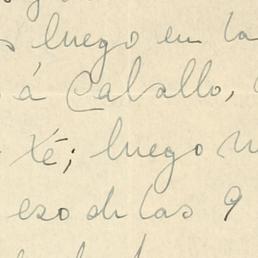 luego en la
á Caballo,
té; luego
eso de las 9